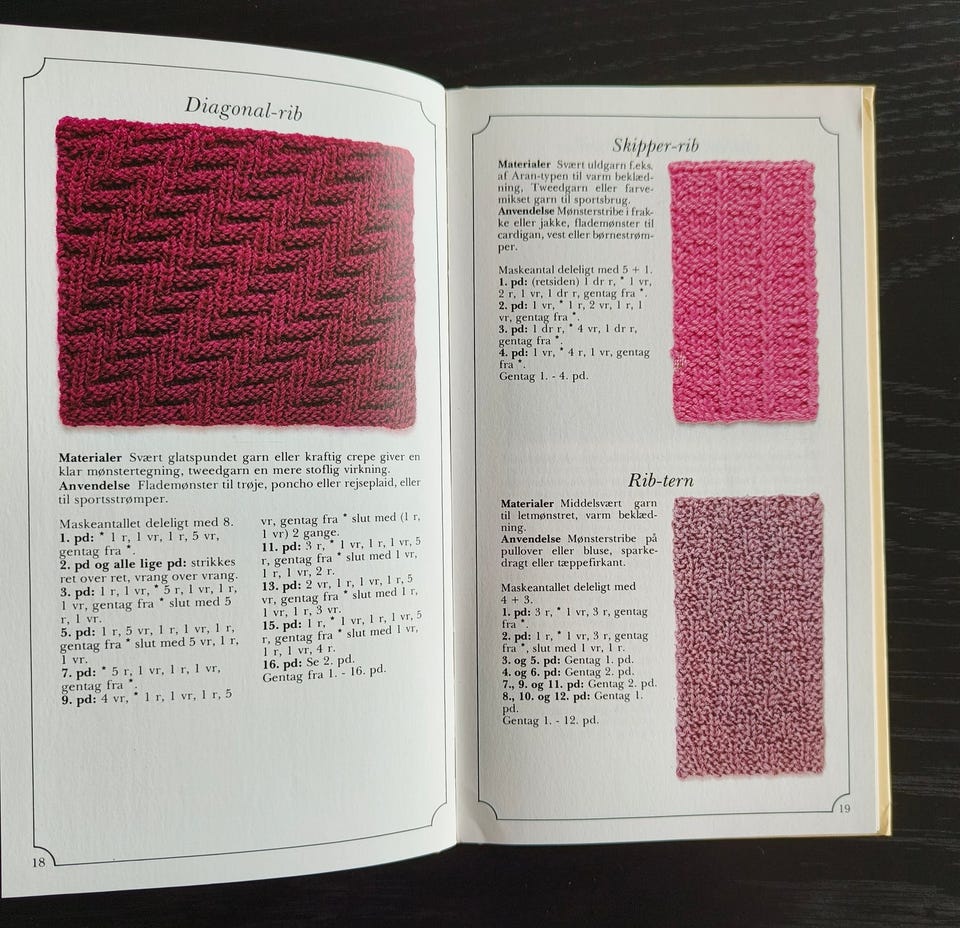 Diagonal-rib
Materialer Svært glatspundet garn eller kraftig crepe giver en
klar mønstertegning, tweedgarn en mere stoflig virkning.
Anvendelse Flademønster til trøje, poncho eller rejseplaid, eller
til sportsstrømper.
Maskeantallet deleligt med 8.
1. pd: * 1 r, 1 vr, 1 r, 5 vr,
gentag fra *.
2. pd og alle lige pd: strikkes
ret over ret, vrang over vrang.
3. pd: 1 r, 1 vr, * 5 r, 1 vr, 1 r,
1 vr, gentag fra * slut med 5
r, 1 vr.
5. pd: 1 r, 5 vr, 1 r, 1 vr, 1 r,
gentag fra * slut med 5 vr, 1 r,
1 vr.
7. pd: * 5 r, 1 vr, 1 r, 1 vr,
gentag fra *.
9. pd: 4 vr, * 1 r, 1 vr, 1 r, 5
vr, gentag fra * slut med (1 r,
1 vr) 2 gange.
11. pd: 3 r, * 1 vr, 1 r, 1 vr, 5
r, gentag fra * slut med 1 vr,
1 r, 1 vr, 2 r.
13. pd: 2 vr, 1 r, 1 vr, 1 r, 5
vr, gentag fra * slut med 1 r,
1 vr, 1 r, 3 vr.
15. pd: 1 r, * 1 vr, 1 r, 1 vr, 5
r, gentag fra * slut med 1 vr,
1 r, 1 vr, 4 r.
16. pd: Se 2. pd.
Gentag fra 1. - 16. pd.
18
Skipper-rib
Materialer Svært uldgarn f.eks.
af Aran-typen til varm beklæd-
ning, Tweedgarn eller farve-
mikset garn til sportsbrug.
Anvendelse Mønsterstribe i frak-
ke eller jakke, flademønster til
cardigan, vest eller børnestrøm-
per.
Maskeantal deleligt med 5 + 1.
1. pd: (retsiden) 1 dr r, * 1 vr,
2 r, 1 vr, 1 dr r, gentag fra *.
2. pd: 1 vr, * 1 r, 2 vr, 1 r, 1
vr, gentag fra *.
3. pd: 1 dr r, * 4 vr, 1 dr r,
gentag fra *.
4. pd: 1 vr, * 4 r, 1 vr, gentag
fra *.
Gentag 1. - 4. pd.
Rib-tern
Materialer Middelsvært garn
til letmønstret, varm beklæd-
ning.
Anvendelse Mønsterstribe på
pullover eller bluse, sparke-
dragt eller tæppefirkant.
Maskeantallet deleligt med
4 + 3.
1. pd: 3 r, * 1 vr, 3 r, gentag
fra *.
2. pd: 1 r, * 1 vr, 3 r, gentag
fra *, slut med 1 vr, 1 r.
3. og 5. pd: Gentag 1. pd.
4. og 6. pd: Gentag 2. pd.
7., 9. og 11. pd: Gentag 2. pd.
8., 10. og 12. pd: Gentag 1.
pd.
Gentag 1. - 12. pd.
19